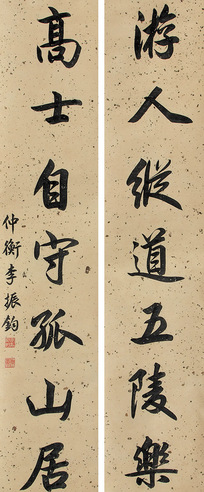 游人縱道五陵樂
高士自守孤山居
仲衡李振鈞